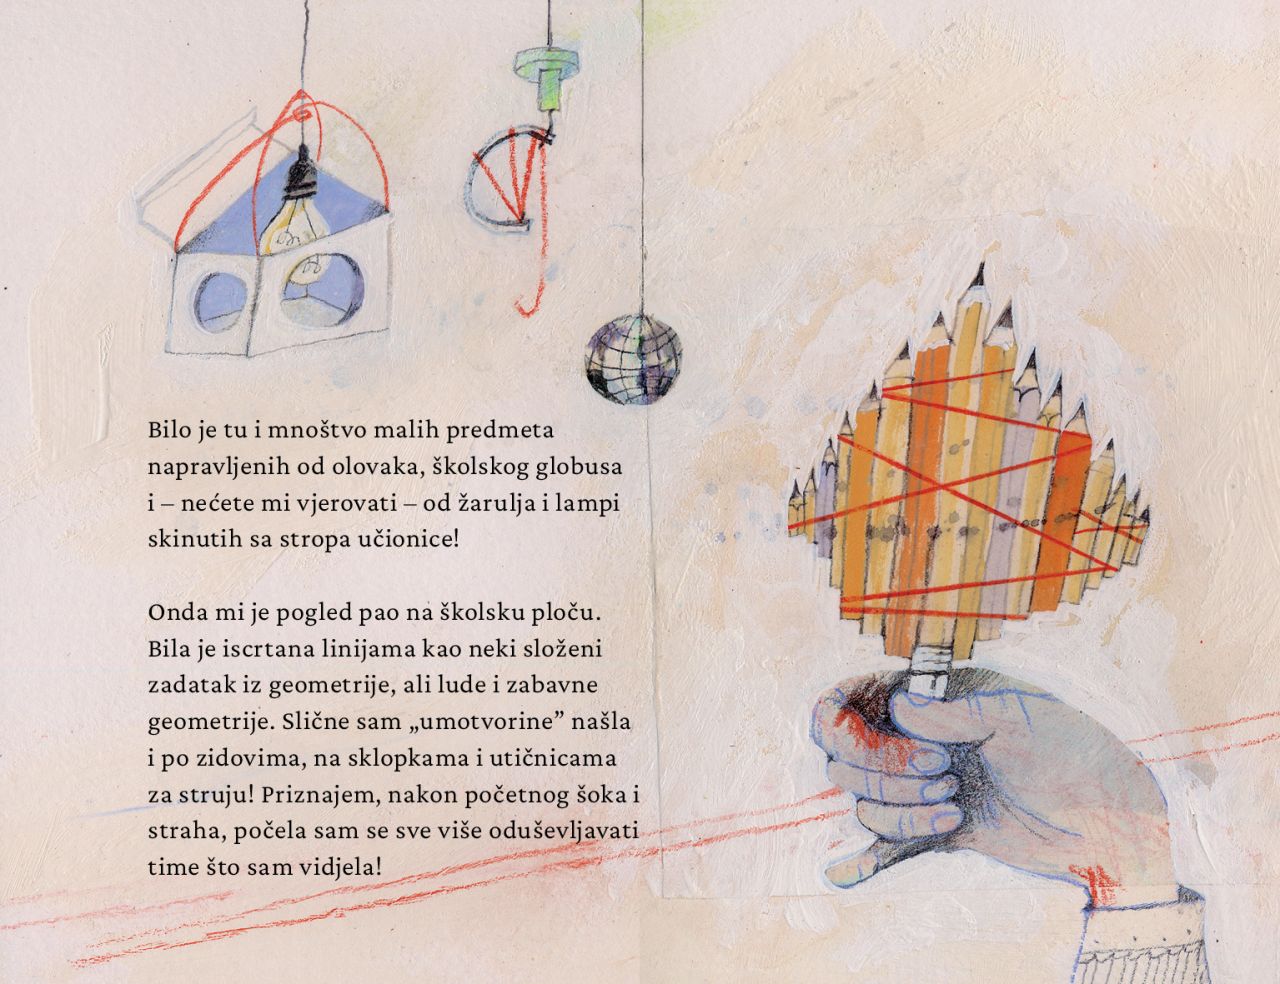 Bilo je tu i mnoštvo malih predmeta
napravljenih od olovaka, školskog globusa
i – nećete mi vjerovati – od žarulja i lampi
skinutih sa stropa učionice!
Onda mi je pogled pao na školsku ploču.
Bila je iscrtana linijama kao neki složeni
zadatak iz geometrije, ali lude i zabavne
geometrije. Slične sam „umotvorine” našla
i po zidovima, na sklopkama i utičnicama
za struju! Priznajem, nakon početnog šoka i
straha, počela sam se sve više oduševljavati
time što sam vidjela!